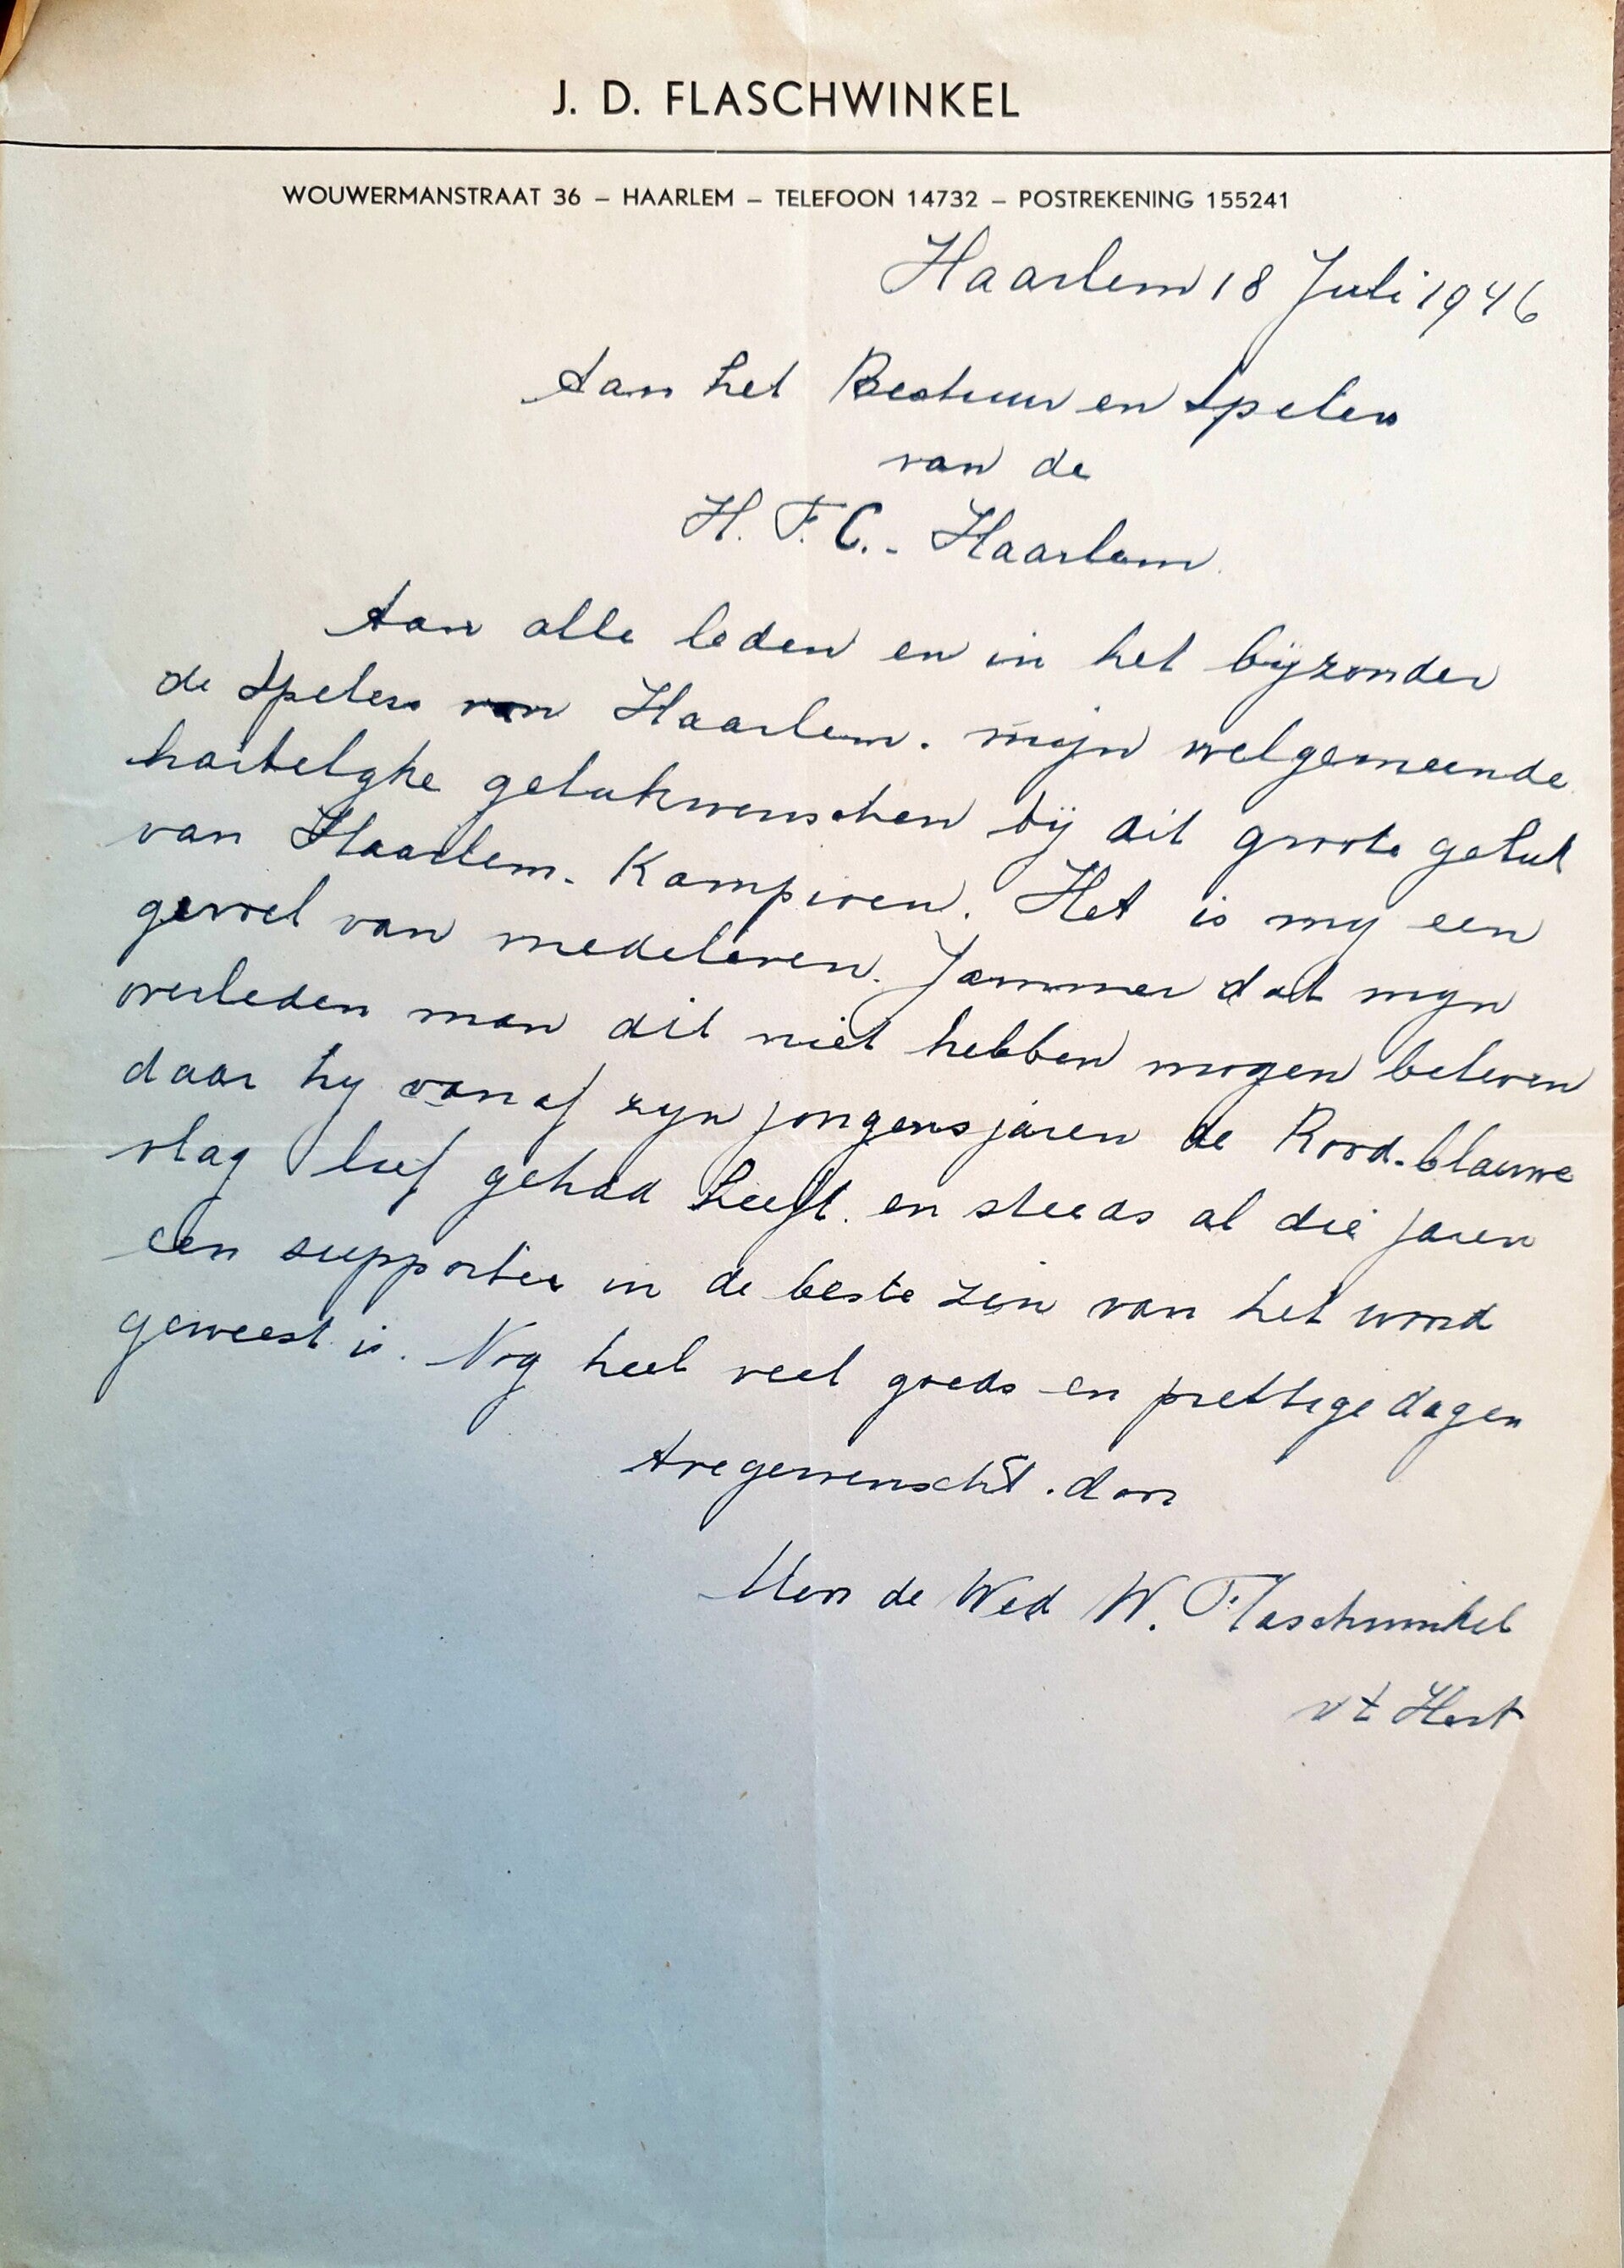 J. D. FLASCHWINKEL
WOUWERMANSTRAAT 36 – HAARLEM – TELEFOON 14732 – POSTREKENING 155241
Haarlem 18 Juli 1946
Aan het Bestuur en Spelers
van de
H.F.C. - Haarlem.
Aan alle leden en in het bijzonder
de Spelers van Haarlem. mijn welgemeende
hartelyke gelukwenschen bij dit groote geluk
van Haarlem. Kampioen. Het is my een
gevoel van medeleven. Jammer dat myn
overleden man dit niet hebben mogen beleven
daar hy vanaf zyn jongensjaren de Rood-blauwe
vlag lief gehad heeft. en steeds al die jaren
een supporter in de beste zin van het woord
geweest is. Nog heel veel goeds en prettige dagen
toegewenscht. door
de Wed W. Flaschwinkel
v t Hert